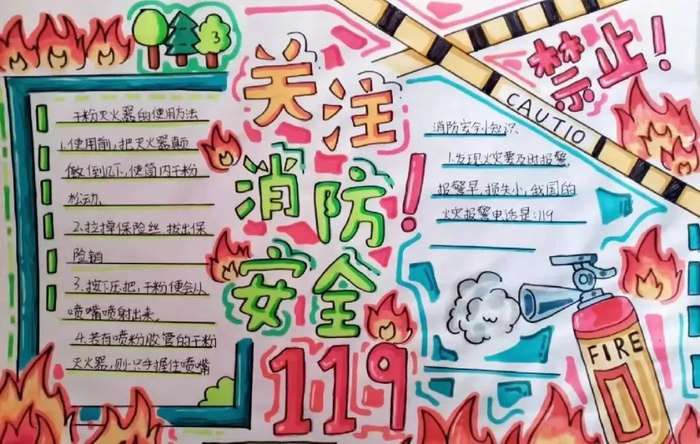 关注
消防
安全
119
！
禁止！
CAUTIO
干粉灭火器的使用方法
1.使用前,把灭火器颠
倒几下,使筒内干粉
松动.
2.拉掉保险丝,拔出保
险销
3.按下压把,干粉便会从
喷嘴喷射出来.
4.若有喷粉吹管的干粉
灭火器,则只手握住喷嘴
消防安全小知识
1.发现火灾要及时报警,
报警早,损失小,我国的
火灾报警电话是:119
FIRE